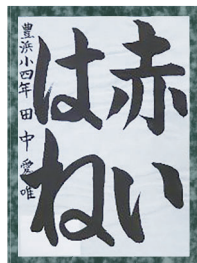 赤い
はね
豊浜小四年 田中愛唯